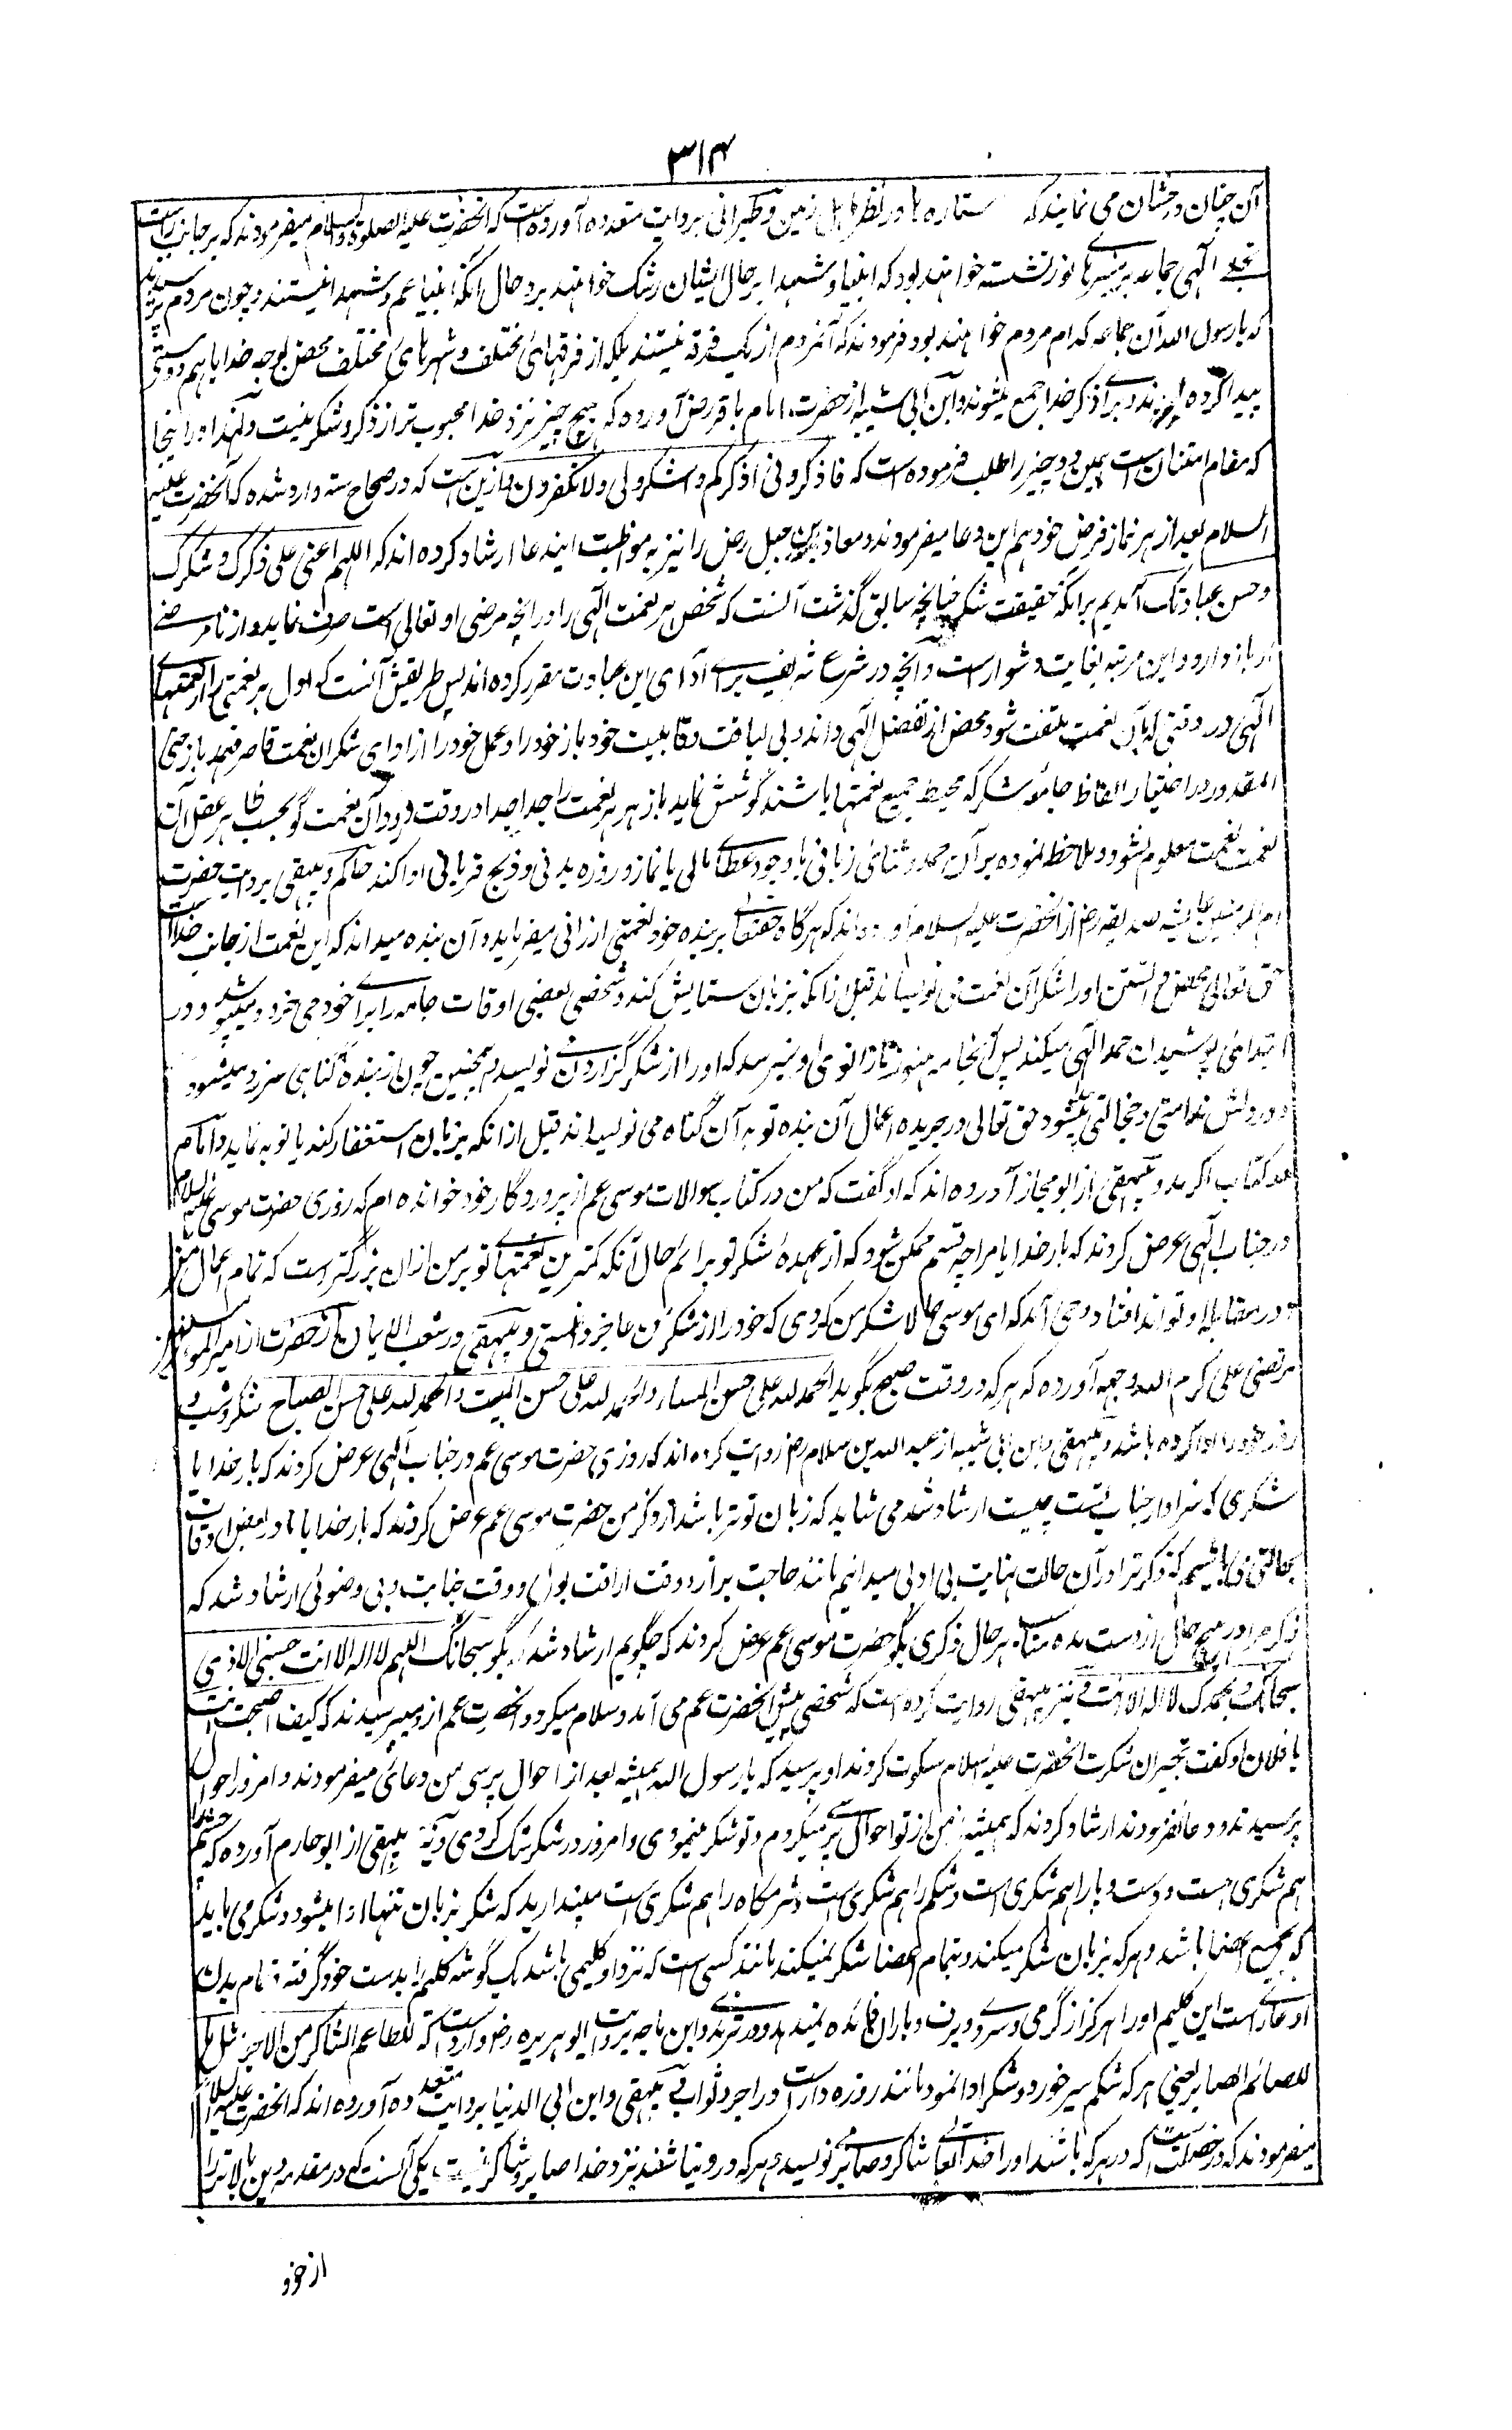 ۳۱۴
آن چنان درخشان می نمایند که ستاره ها در نظر اهل زمین و طبرانی بروایت متعدده آورده است که آنحضرت علیه الصلوة والسلام میفرمودند که بر جانب راست
تجلی الٰهی جماعه بر منبرهای نور نشسته خواهند بود که انبیا و شهدا بر حال ایشان رشک خواهند برد حال آنکه انبیا عم و شهدا نیستند و چون مردم پرسیدند
که یا رسول الله آن جماعه کدام مردم خواهند بود فرمودند که آنمردم از یک فرقه نیستند بلکه از فرقهای مختلف و شهرهای مختلف محض لوجه خدا باهم دوستی
پیدا کرده اند و برای ذکر خدا جمع میشوند و ابن ابی شیبه از حضرت امام باقر رض آورده که هیچ چیز نزد خدا محبوب تر از ذکر و شکر نیست و لهذا در اینجا
که مقام امتنان است همین دو چیز را طلب فرموده است که فاذکرونی اذکرکم و اشکروا لی ولا تکفرون و ازین است که در صحاح سته وارد شده که آنحضرت علیه
السلام بعد از هر نماز فرض خود هم این دعا میفرمودند و معاذ بن جبل رض را نیز به مواظبت ایندعا ارشاد کرده اند که اللهم اعنی علی ذکرک و شکرک
و حسن عبادتک آمدیم برانکه حقیقت شکر چنانچه سابق گذشت آنست که شخص هر نعمت الٰهی را در انچه مرضی او تعالی است صرف نماید و از نامرضی
او باز دارد و این مرتبه بغایت دشوار است و آنچه در شرع شریف برای ادای این عبادت مقرر کرده اند پس طریقش آنست که اول هر نعمتی را از نعمتهای
الٰهی در وقتی که بآن نعمت ملتفت شود محض از تفضل الٰهی داند و بی لیاقت و قابلیت خود باز خود را و عمل خود را از ادای شکر آن نعمت قاصر فهمد باز حتی
المقدور در اختیار الفاظ جامعه شکر که محیط جمیع نعمتها باشند کوشش نماید باز هر هر نعمت را جدا جدا در وقت ورود آن نعمت گو بحسب ظاهر عقل آن
نعمت نعمت معلوم نشود ملاحظه نموده بر آن حمد و ثنای زبانی با وجود عطای مالی یا نماز و روزه بدنی و ذبح قربانی ادا کند حاکم و بیهقی بروایت حضرت
ام المومنین عایشه صدیقه رض از آنحضرت علیه السلام آورده اند که هرگاه حقتعالی بر بنده خود نعمتی ارزانی میفرماید و آن بنده میداند که این نعمت از جانب خداست
حق تعالی بمحض دانستن او را شکر آن نعمت می نویساند قبل ازانکه بزبان ستایش کند و شخصی بعضی اوقات جامه را برای خود می خرد و میپوشد و در
ابتدای پوشیدن حمد الٰهی میکند پس آنجامه هنوز تا زانوی او نمیرسد که او را از شکرگزاران می نویسند همچنین چون از بنده گناهی سرزد میشود
و در دلش ندامتی و خجالتی پیدا میشود حق تعالی در جریده اعمال آن بنده توبه آن گناه می نویساند قبل از انکه بزبان استغفار کند یا توبه نماید و امام
احمد کتاب الزهد و بیهقی از ابو مجاز آورده اند که او گفت که من در کتاب سوالات موسی عم از پروردگار خود خوانده ام که روزی حضرت موسی علیه السلام
در جناب الٰهی عرض کردند که بار خدایا مرا چه قسم ممکن شود که از عهدهٔ شکر تو برایم حال آنکه کمترین نعمتهای تو بر من ازان بزرگتر است که تمام اعمال من
در مقابله او تواند افتاد وحی آمد که ای موسی حالا شکر من کردی که خود را از شکر من عاجز دانستی و بیهقی در شعب الایمان از حضرت امیر المومنین
مرتضی علی کرم الله وجهه آورده که هر که در وقت صبح بگوید الحمد لله علی حسن المساء و الحمد لله علی حسن المبیت و الحمد لله علی حسن الصباح شکر شب و
روز خود را ادا کرده باشد و بیهقی و ابن ابی شیبه از عبد الله بن سلام رض روایت کرده اند که روزی حضرت موسی عم در جناب الٰهی عرض کردند که بار خدایا
شکری که سزاوار جناب تست چیست ارشاد شد می شاید که زبان تو تر باشد از ذکر من حضرت موسی عم عرض کردند که بار خدایا ما در بعض اوقات
بحالتی می باشیم که ذکر ترا در آن حالت نهایت بی ادبی میدانیم مانند حاجت براز و وقت اراقت بول و وقت جنابت و بی وضوئی ارشاد شد که
ذکر مرا در هیچ حال از دست مده مناسب هر حال ذکری بگو حضرت موسی عم عرض کردند که چگویم ارشاد شد که بگو سبحانک اللهم لا اله الا انت جنبنی الاذی
سبحانک و بحمدک لا اله الا انت و نیز بیهقی روایت کرده است که شخصی پیش آنحضرت عم می آمد و سلام میکرد و آنحضرت عم از و میپرسیدند که کیف اصبحت
یا فلان او گفت بخیر ان شکرت آنحضرت علیه السلام سکوت کردند او پرسید که یا رسول الله همیشه بعد از احوال پرسی من دعائی میفرمودند و امروز احوال
پرسیدند و دعا نفرمودند ارشاد کردند که همیشه من از تو احوال پرسی میکردم و تو شکر مینمودی و امروز در شکر شک کردی و نیز بیهقی از ابو حازم آورده که چشم را
هم شکری هست و دست و پا را هم شکری است و شکم را هم شکری است و شرمگاه را هم شکری است مپندارید که شکر بزبان تنها ادا میشود و شکر می باید
که بجمیع اعضا باشد و هر که بزبان شکر میکند و بتمام اعضا شکر نمیکند مانند کسی است که نزد او گلیمی باشد یک گوشه گلیم را بدست خود گرفته و تمام بدن
او عاری است این گلیم او را هرگز از گرمی و سردی و برف و باران فائده نمیدهد و ترمذی و ابن ماجه بروایت ابو هریره رض وارد است که للطاعم الشاکر من الاجر مثل ما
للصائم الصابر یعنی هر که شکم سیر خورد و شکر ادا نمود مانند روزه دار است در اجر و ثواب و بیهقی و ابن ابی الدنیا بروایت متعدده آورده اند که آنحضرت علیه السلام
میفرمودند که دو خصلت است که در هر که باشند او را خدا تعالی شاکر و صابر می نویسد و هر که درو نباشند نزد خدا صابر و شاکر نیست یکی آنست که در مقدمه دین بالاتر را
از خود